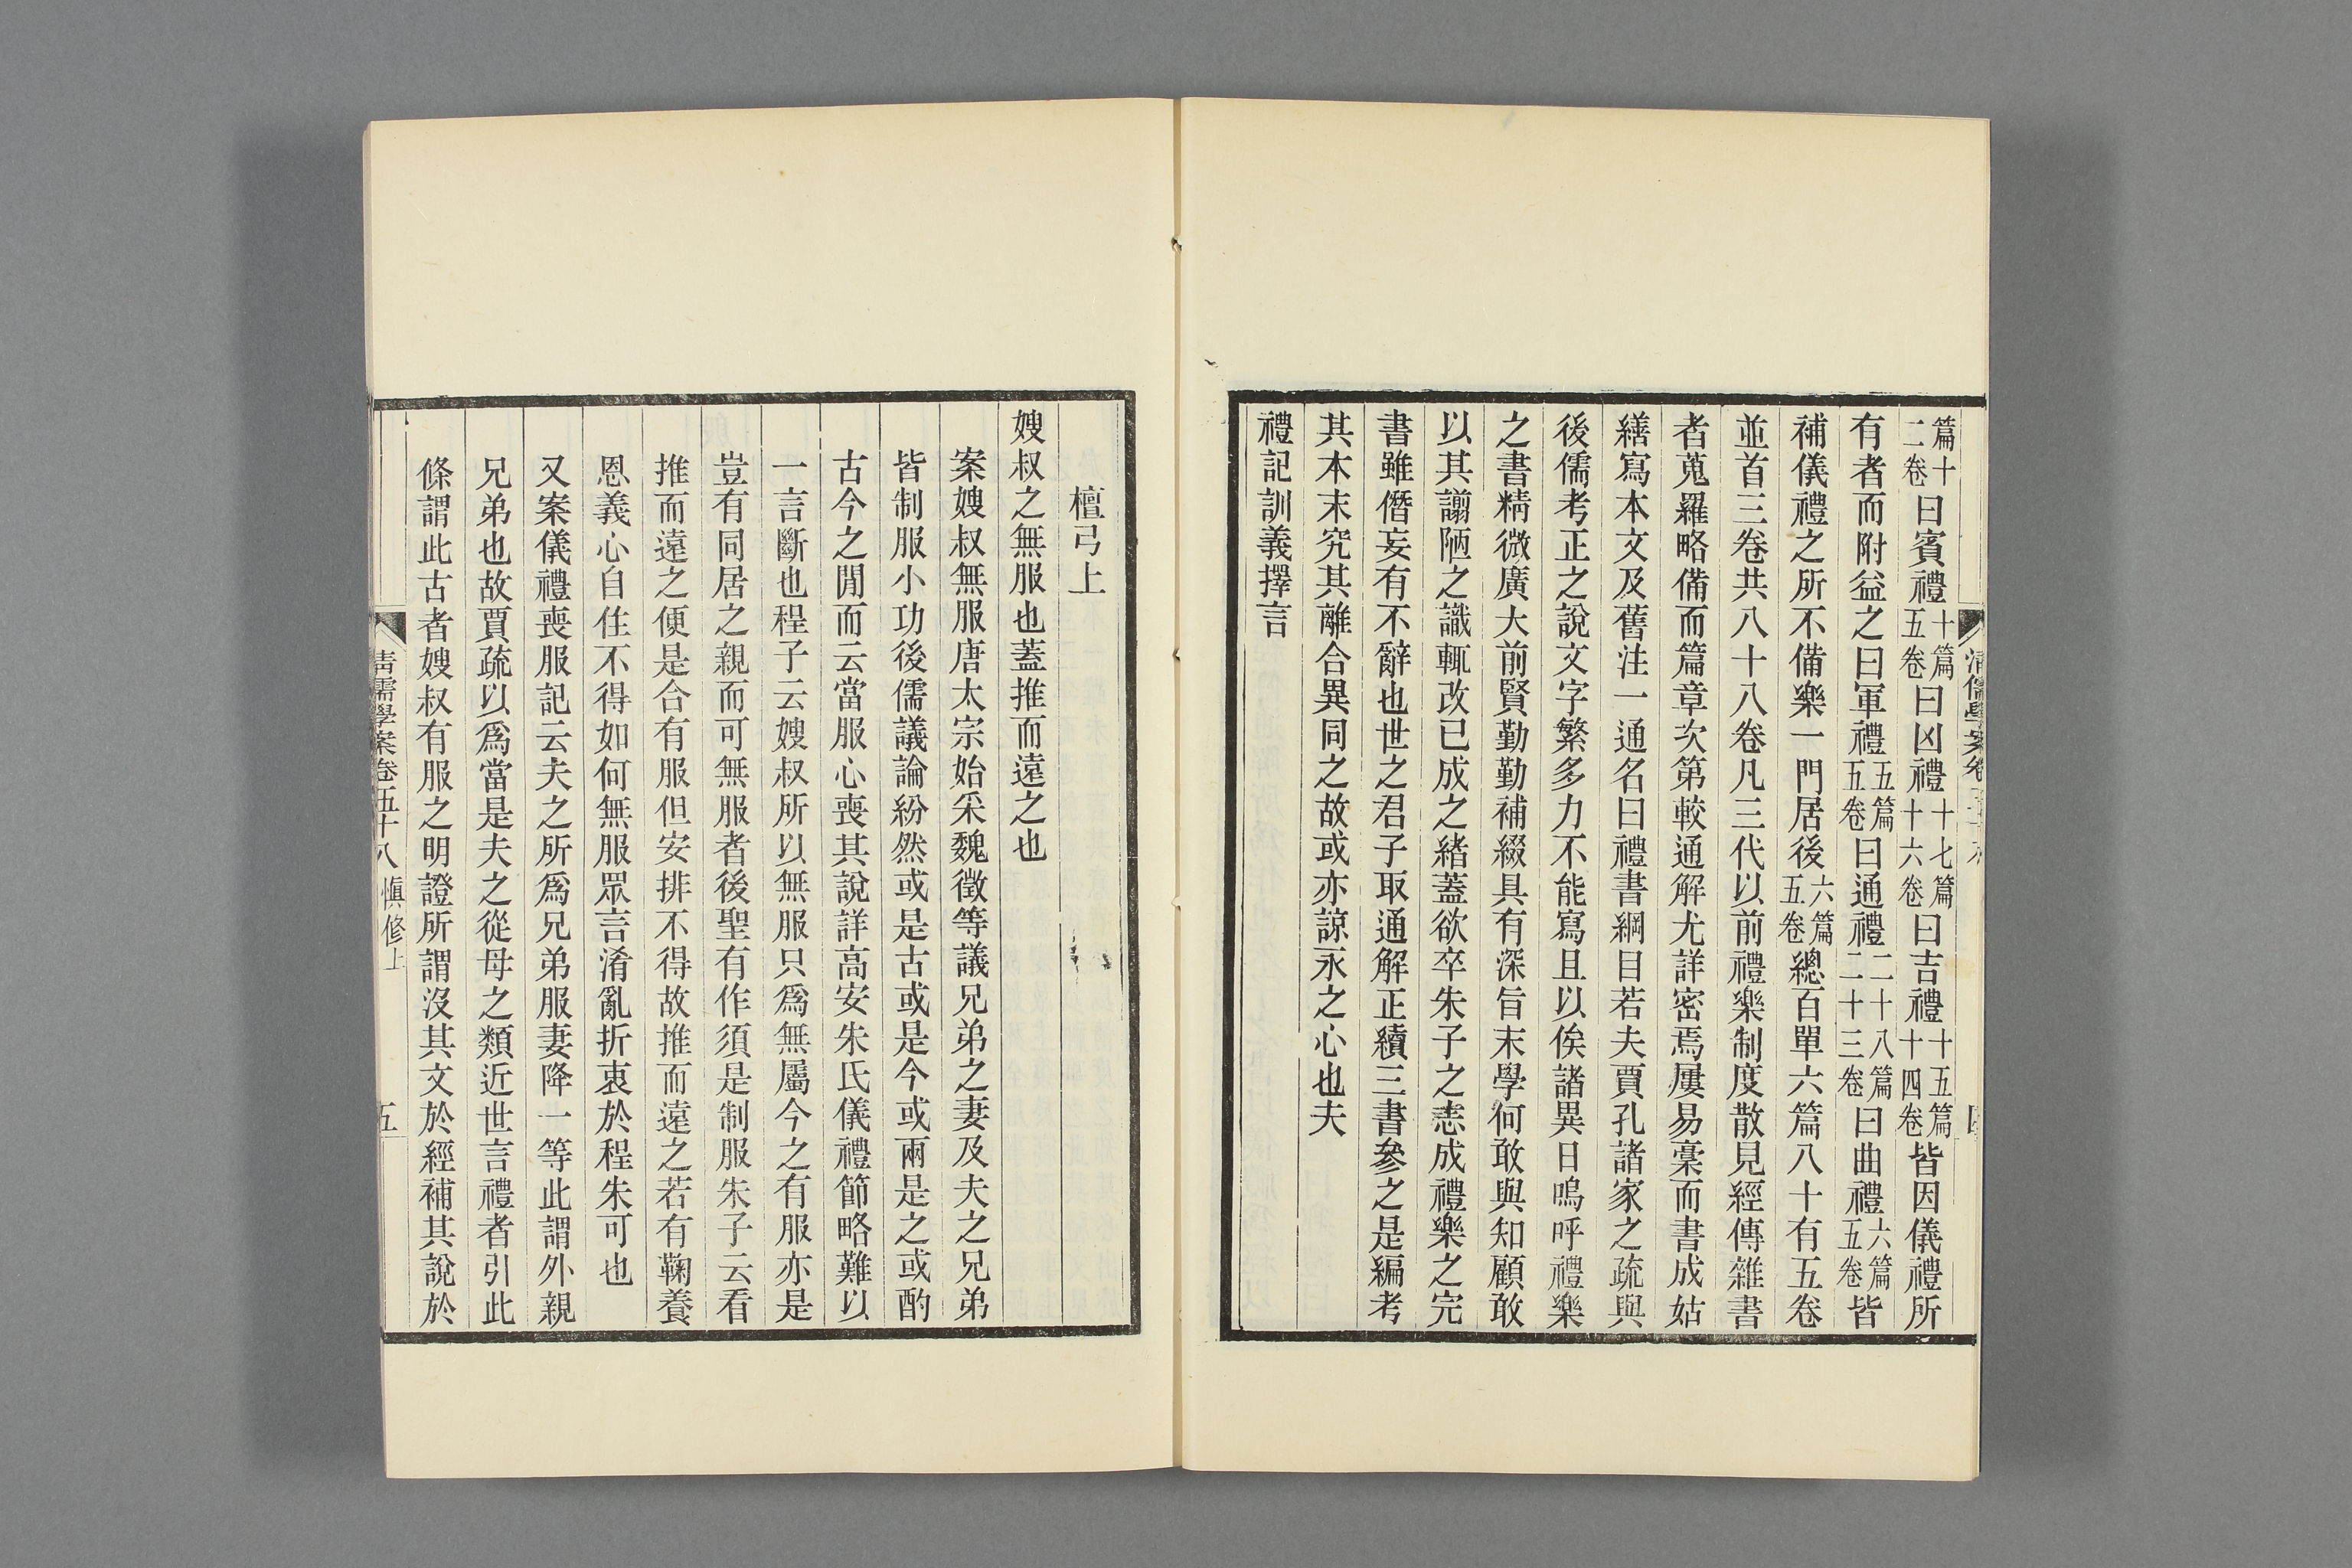 篇十二卷曰賓禮十篇五卷曰凶禮十七篇十六卷曰吉禮十五篇十四卷皆因儀禮所
有者而附益之曰軍禮五篇五卷曰通禮二十八篇二十三卷曰曲禮六篇五卷皆
補儀禮之所不備樂一門居後六篇五卷總百單六篇八十有五卷
並首三卷共八十八卷凡三代以前禮樂制度散見經傳雜書
者蒐羅略備而篇章次第較通解尤詳密焉屢易稾而書成姑
繕寫本文及舊注一通名曰禮書綱目若夫賈孔諸家之疏與
後儒考正之說文字繁多力不能寫且以俟諸異日嗚呼禮樂
之書精微廣大前賢勤勤補綴具有深旨末學何敢與知顧敢
以其謭陋之識輒改已成之緒蓋欲卒朱子之志成禮樂之完
書雖僭妄有不辭也世之君子取通解正續三書參之是編考
其本末究其離合異同之故或亦諒永之心也夫
禮記訓義擇言
檀弓上
嫂叔之無服也蓋推而遠之也
案嫂叔無服唐太宗始采魏徵等議兄弟之妻及夫之兄弟
皆制服小功後儒議論紛然或是古或是今或兩是之或酌
古今之閒而云當服心喪其說詳高安朱氏儀禮節略難以
一言斷也程子云嫂叔所以無服只爲無屬今之有服亦是
豈有同居之親而可無服者後聖有作須是制服朱子云看
推而遠之便是合有服但安排不得故推而遠之若有鞠養
恩義心自住不得如何無服眾言淆亂折衷於程朱可也
又案儀禮喪服記云夫之所爲兄弟服妻降一等此謂外親
兄弟也故賈疏以爲當是夫之從母之類近世言禮者引此
條謂此古者嫂叔有服之明證所謂沒其文於經補其說於
清儒學案卷五十八 愼修上
五